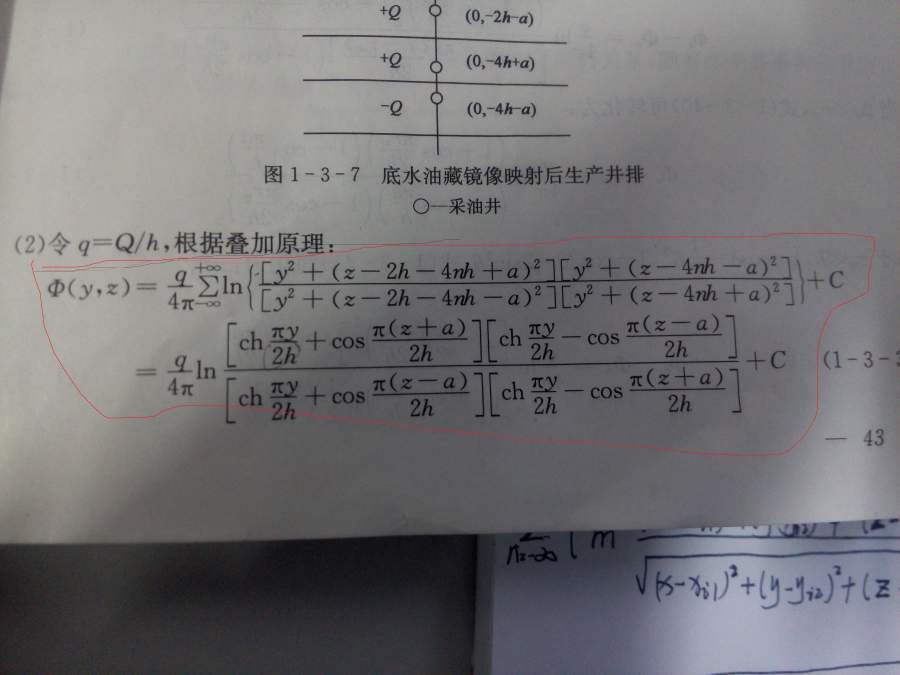 +Q (0,-2h-a)
+Q (0,-4h+a)
-Q (0,-4h-a)
图 1-3-7 底水油藏镜像映射后生产井排
○—采油井
(2)令 q=Q/h,根据叠加原理:
Φ(y,z)= q/4π ∑_{-∞}^{+∞} ln{[y²+(z-2h-4nh+a)²][y²+(z-4nh-a)²] / [y²+(z-2h-4nh-a)²][y²+(z-4nh+a)²]}+C
= q/4π ln [ch πy/2h + cos π(z+a)/2h][ch πy/2h - cos π(z-a)/2h] / [ch πy/2h + cos π(z-a)/2h][ch πy/2h - cos π(z+a)/2h] +C (1-3-3
— 43
√(x-x_{i1})²+(y-y_{i2})²+(z